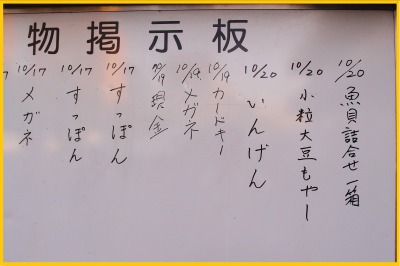 物掲示板
10/20 魚貝詰合せ一箱
10/20 小粒大豆もやし
10/20 いんげん
10/19 カードキー
10/19 メガネ
10/19 現金
10/17 すっぽん
10/17 すっぽん
10/17 メガネ
7